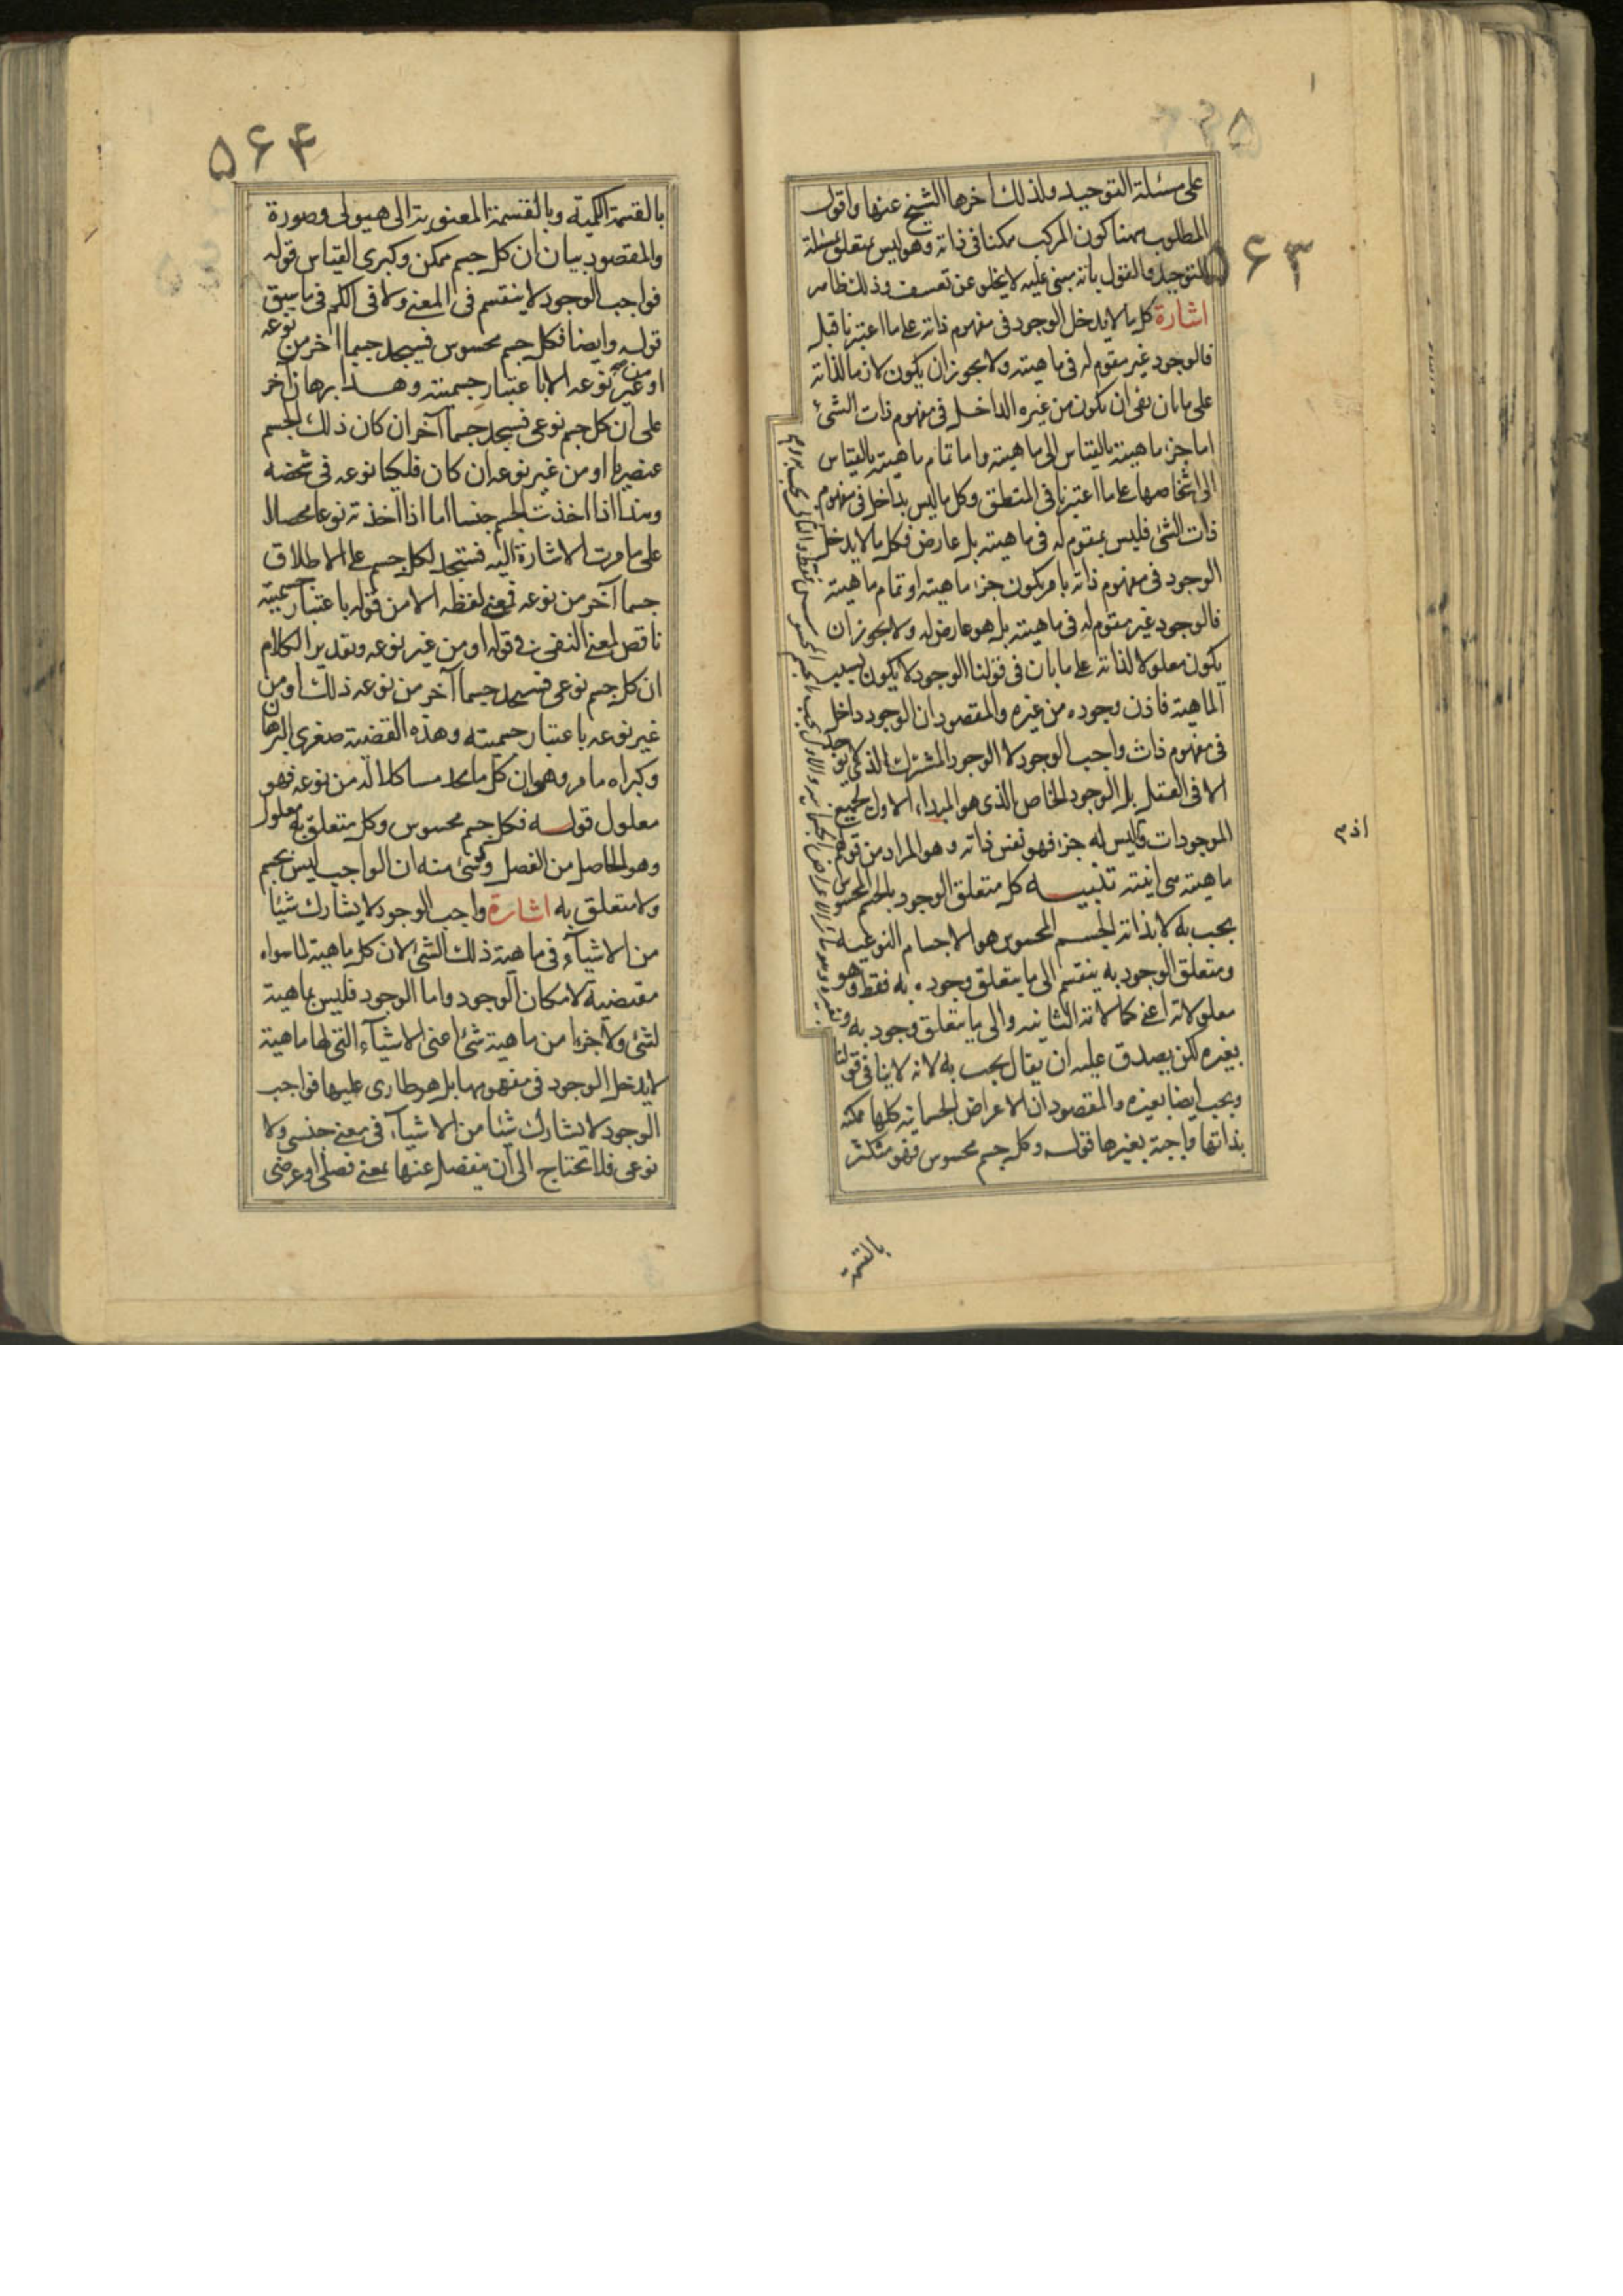 ۵۶۳
على مسئلة التوحيد ولذلك اخرها الشيخ عنها واقول
المطلوب ههنا كون المركب ممكنا فى ذاته وهو ليس بمتعلق بمسئلة
التوحيد والقول بانه مبنى عليه لا يخلو عن تعسف وذلك ظاهر
اشارة كل ما لا يدخل الوجود فى مفهوم ذاته على ما اعتبرنا قبل
فالوجود غير مقوم له فى ماهيته ولا يجوز ان يكون لازما لذاته
على ما بان بقى ان يكون من غيره الداخل فى مفهوم ذات الشئ
اما جزء ماهيته بالقياس الى ماهيته واما تمام ماهيته بالقياس
الى اشخاصها على ما اعتبرنا فى المنطق وكل ما ليس بداخل فى مفهوم
ذات الشئ فليس بمقوم له فى ماهيته بل عارض فكل ما لا يدخل
الوجود فى مفهوم ذاته بان يكون جزء ماهيته او تمام ماهيته
فالوجود غير مقوم له فى ماهيته بل هو عارض له ولا يجوز ان
يكون معلولا لذاته على ما بان فى قولنا الوجود لا يكون بسبب
الماهية فاذن وجوده من غيره والمقصود ان الوجود داخل
فى مفهوم ذات واجب الوجود لا الوجود المشترك الذى لا يوجد
الا فى العقل بل الوجود الخاص الذى هو المبداء الاول لجميع
الموجودات واذ ليس له جزء فهو نفس ذاته وهو المراد من قولهم
ماهيته هى انيته تنبيه كل متعلق الوجود بالجسم المحسوس
يجب به لا بذاته الجسم المحسوس هو الاجسام النوعية
ومتعلق الوجود به ينقسم الى ما يتعلق وجوده به فقط وهو
معلولاته اعنى كمالاته الثانية والى ما يتعلق وجوده به
بغيره لكن يصدق عليه ان يقال يجب به لانه لا ينافى قولنا
ويجب ايضا بغيره والمقصود ان الاعراض الجسمانية كلها ممكنة
بذاتها واجبة بغيرها قوله وكل جسم محسوس فهو متكثر
بالقسمة
۵۶۴
بالقسمة الكمية وبالقسمة المعنوية الى هيولى وصورة
والمقصود بيان ان كل جسم ممكن وكبرى القياس قوله
فواجب الوجود لا ينقسم فى المعنى ولا فى الكم فى ما سبق
قوله وايضا فكل جسم محسوس فسيجد جسما آخر من نوعه
او من غير نوعه الا باعتبار جسميته وهذا برهان آخر
على ان كل جسم نوعى فسيجد جسما آخر ان كان ذلك الجسم
عنصريا او من غير نوعه ان كان فلكيا نوعه فى شخصه
وهذا اذا اخذت الجسم جنسا اما اذا اخذته نوعا محصلا
على ما مرت الاشارة اليه فستجد لكل جسم على الاطلاق
جسما آخر من نوعه فمعنى لفظه الا من قوله باعتبار جسميته
ناقص لمعنى النفى فى قوله او من غير نوعه وتقدير الكلام
ان كل جسم نوعى فستجد جسما آخر من نوعه ذلك او من
غير نوعه باعتبار جسميته وهذه القضية صغرى البرهان
وكبراه ما مر وهو ان كل ما تجد مشاكلا له من نوعه فهو
معلول قوله فكل جسم محسوس وكل متعلق به معلول
وهو الحاصل من الفصل وتبين منه ان الواجب ليس بجسم
ولا متعلق به اشارة واجب الوجود لا يشارك شيئا
من الاشياء فى ماهية ذلك الشئ لان كل ماهية لما سواه
مقتضية لامكان الوجود واما الوجود فليس بماهية
لشئ ولا جزءا من ماهية شئ اعنى الاشياء التى لها ماهية
لا يدخل الوجود فى مفهومها بل هو طارى عليها فواجب
الوجود لا يشارك شيئا من الاشياء فى معنى جنسى ولا
نوعى فلا تحتاج الى ان ينفصل عنها بمعنى فصلى او عرضى